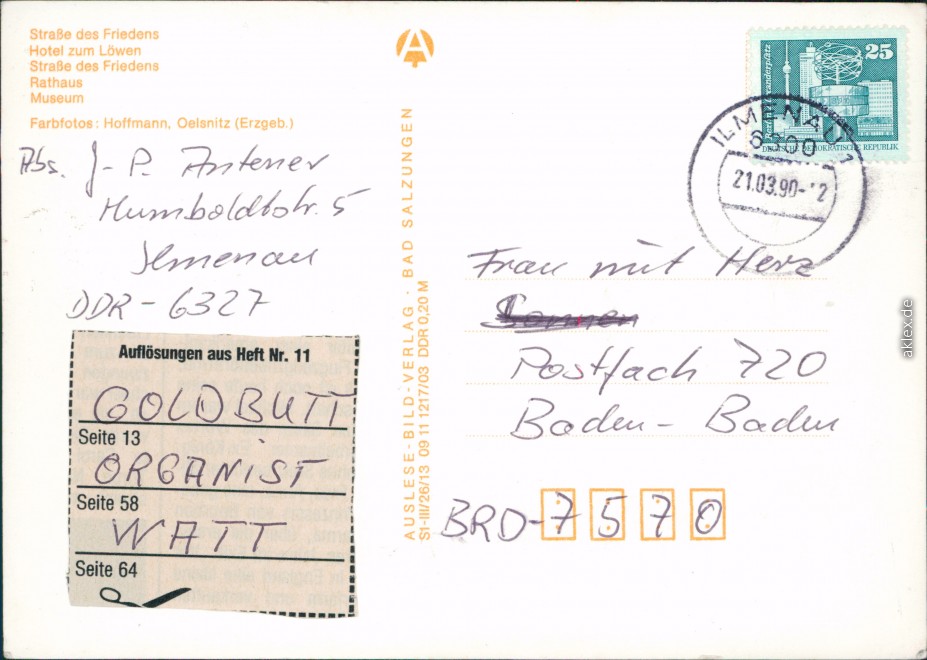 Straße des Friedens
Hotel zum Löwen
Straße des Friedens
Rathaus
Museum
Farbfotos: Hoffmann, Oelsnitz (Erzgeb.)
Abs. J.-P. Antener
Humboldtstr. 5
Ilmenau
DDR - 6327
Auflösungen aus Heft Nr. 11
GOLDBUTT
Seite 13
ORGANIST
Seite 58
WATT
Seite 64
AUSLESE-BILD-VERLAG · BAD SALZUNGEN
S1-III/26/13 09 11 1217/03 DDR 0,20 M
25
DEUTSCHE DEMOKRATISCHE REPUBLIK
ILMENAU 1
6300
21.03.90-12
Frau mit Herz
Postfach 720
Baden-Baden
BRD-7570
aklex.de